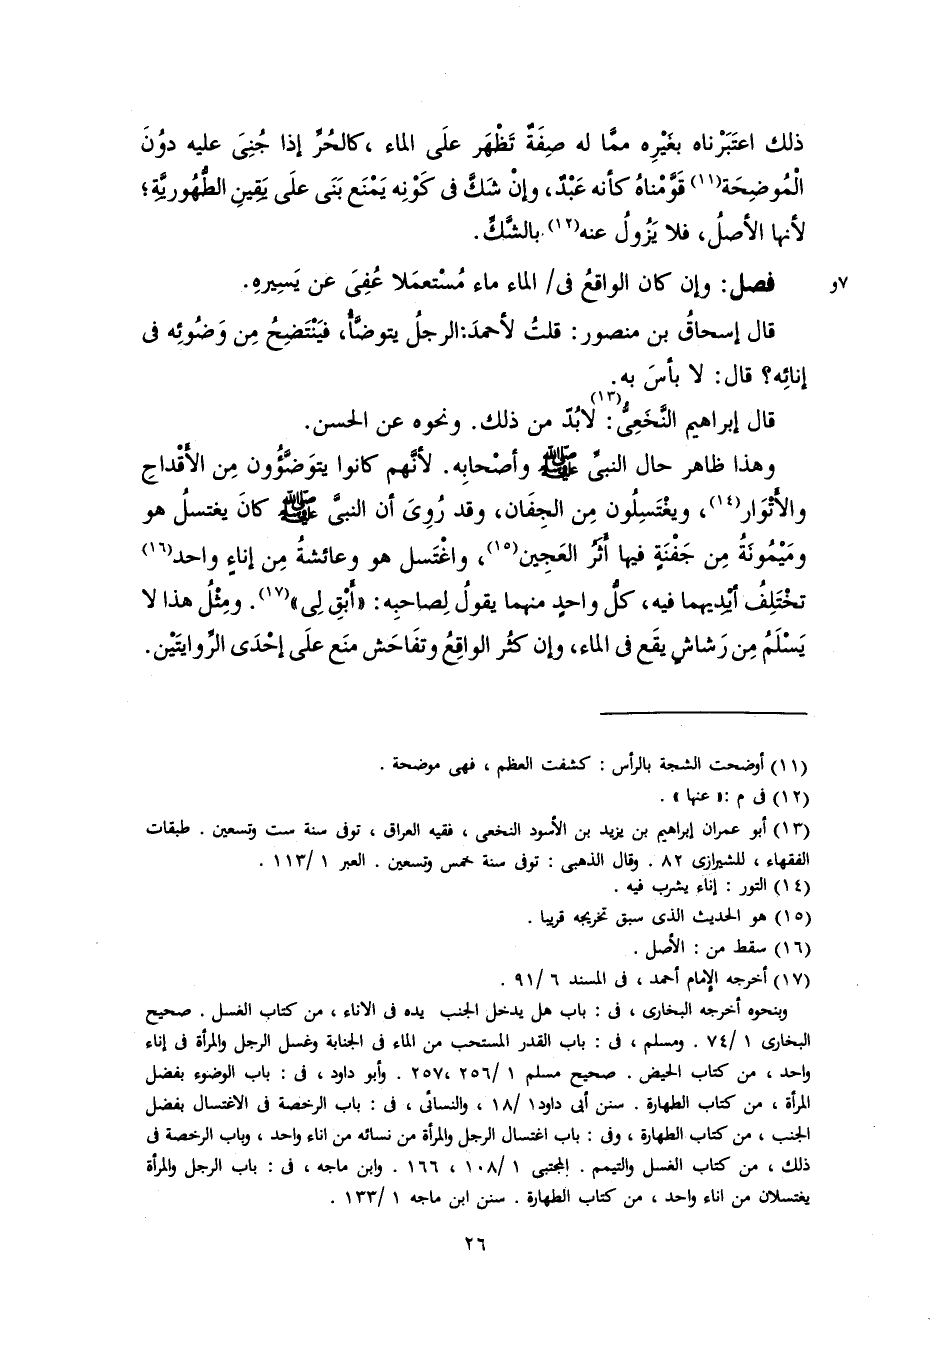 ذلك اعتَبَرْناه بغَيْرِه ممَّا له صِفَةٌ تَظْهَر علَى الماء ،كالحُرِّ إذا جُنِىَ عليه دوُنَ
الْمُوضِحَة(١١) قَوَّمْناهُ كأنه عَبْدٌ، وإنْ شَكَّ فى كَوْنِه يَمْنَع بَنَى علَى يَقِينِ الطَّهُوريَّةِ؛
لأنها الأصلُ، فلا يَزُولُ عنه(١٢) بالشَّكِّ.
٧و فصل: وإن كان الواقعُ فى/ الماء ماء مُسْتعمَلا عُفِىَ عن يَسيرِهِ.
قال إسحاقُ بن منصور: قلتُ لأحمدَ:الرجلُ يتوضَّأُ، فيَنْتَضِحُ مِن وَضُوئِه فى
إنائِه؟ قال: لا بأسَ به.
قال إبراهيم النَّخَعِىُّ(١٣): لابُدّ من ذلك. ونحوه عن الحسن.
وهذا ظاهر حال النبىِّ ﷺ وأصْحابِه. لأنَّهم كانوا يتوَضَّؤُون مِن الأقْداحِ
والأتْوَار(١٤)، ويغْتَسِلُون مِن الجِفَان، وقد رُوِىَ أن النبىَّ ﷺ كانَ يغتسلُ هو
ومَيْمُونَةُ مِن جَفْنَةٍ فيها أَثَرُ العَجِين(١٥)، واغْتَسل هو وعائشةُ مِن إناءٍ واحد(١٦)
تخْتَلِفُ أَيْدِيهما فيه، كلُّ واحدٍ منهما يقولُ لِصاحبِه: «أَبْقِ لِى»(١٧). ومِثْلُ هذا لا
يَسْلَمُ مِن رَشاشٍ يقَع فى الماء، وإن كثُر الواقِعُ وتفَاحَش منَع علَى إحْدَى الرِّوايتَيْن.
(١١) أوضحت الشجة بالرأس : كشفت العظم ، فهى موضحة .
(١٢) فى م :« عنها » .
(١٣) أبو عمران إبراهيم بن يزيد بن الأسود النخعى ، فقيه العراق ، توفى سنة ست وتسعين . طبقات
الفقهاء ، للشيرازى ٨٢ . وقال الذهبى : توفى سنة خمس وتسعين . العبر ١ /١١٣ .
(١٤) التور : إناء يشرب فيه .
(١٥) هو الحديث الذى سبق تخريجه قريبا .
(١٦) سقط من : الأصل .
(١٧) أخرجه الإمام أحمد ، فى المسند ٦ /٩١ .
وبنحوه أخرجه البخارى ، فى : باب هل يدخل الجنب يده فى الاناء ، من كتاب الغسل . صحيح
البخارى ١ /٧٤ . ومسلم ، فى : باب القدر المستحب من الماء فى الجنابة وغسل الرجل والمرأة فى إناء
واحد ، من كتاب الحيض . صحيح مسلم ١ /٢٥٦ ،٢٥٧ . وأبو داود ، فى : باب الوضوء بفضل
المرأة ، من كتاب الطهارة . سنن أبى داود١ /١٨ ، والنسائى ، فى : باب الرخصة فى الاغتسال بفضل
الجنب ، من كتاب الطهارة ، وفى : باب اغتسال الرجل والمرأة من نسائه من اناء واحد ، وباب الرخصة فى
ذلك ، من كتاب الغسل والتيمم . المجتبى ١ /١٠٨ ، ١٦٦ . وابن ماجه ، فى : باب الرجل والمرأة
يغتسلان من اناء واحد ، من كتاب الطهارة . سنن ابن ماجه ١ /١٣٣ .
٢٦